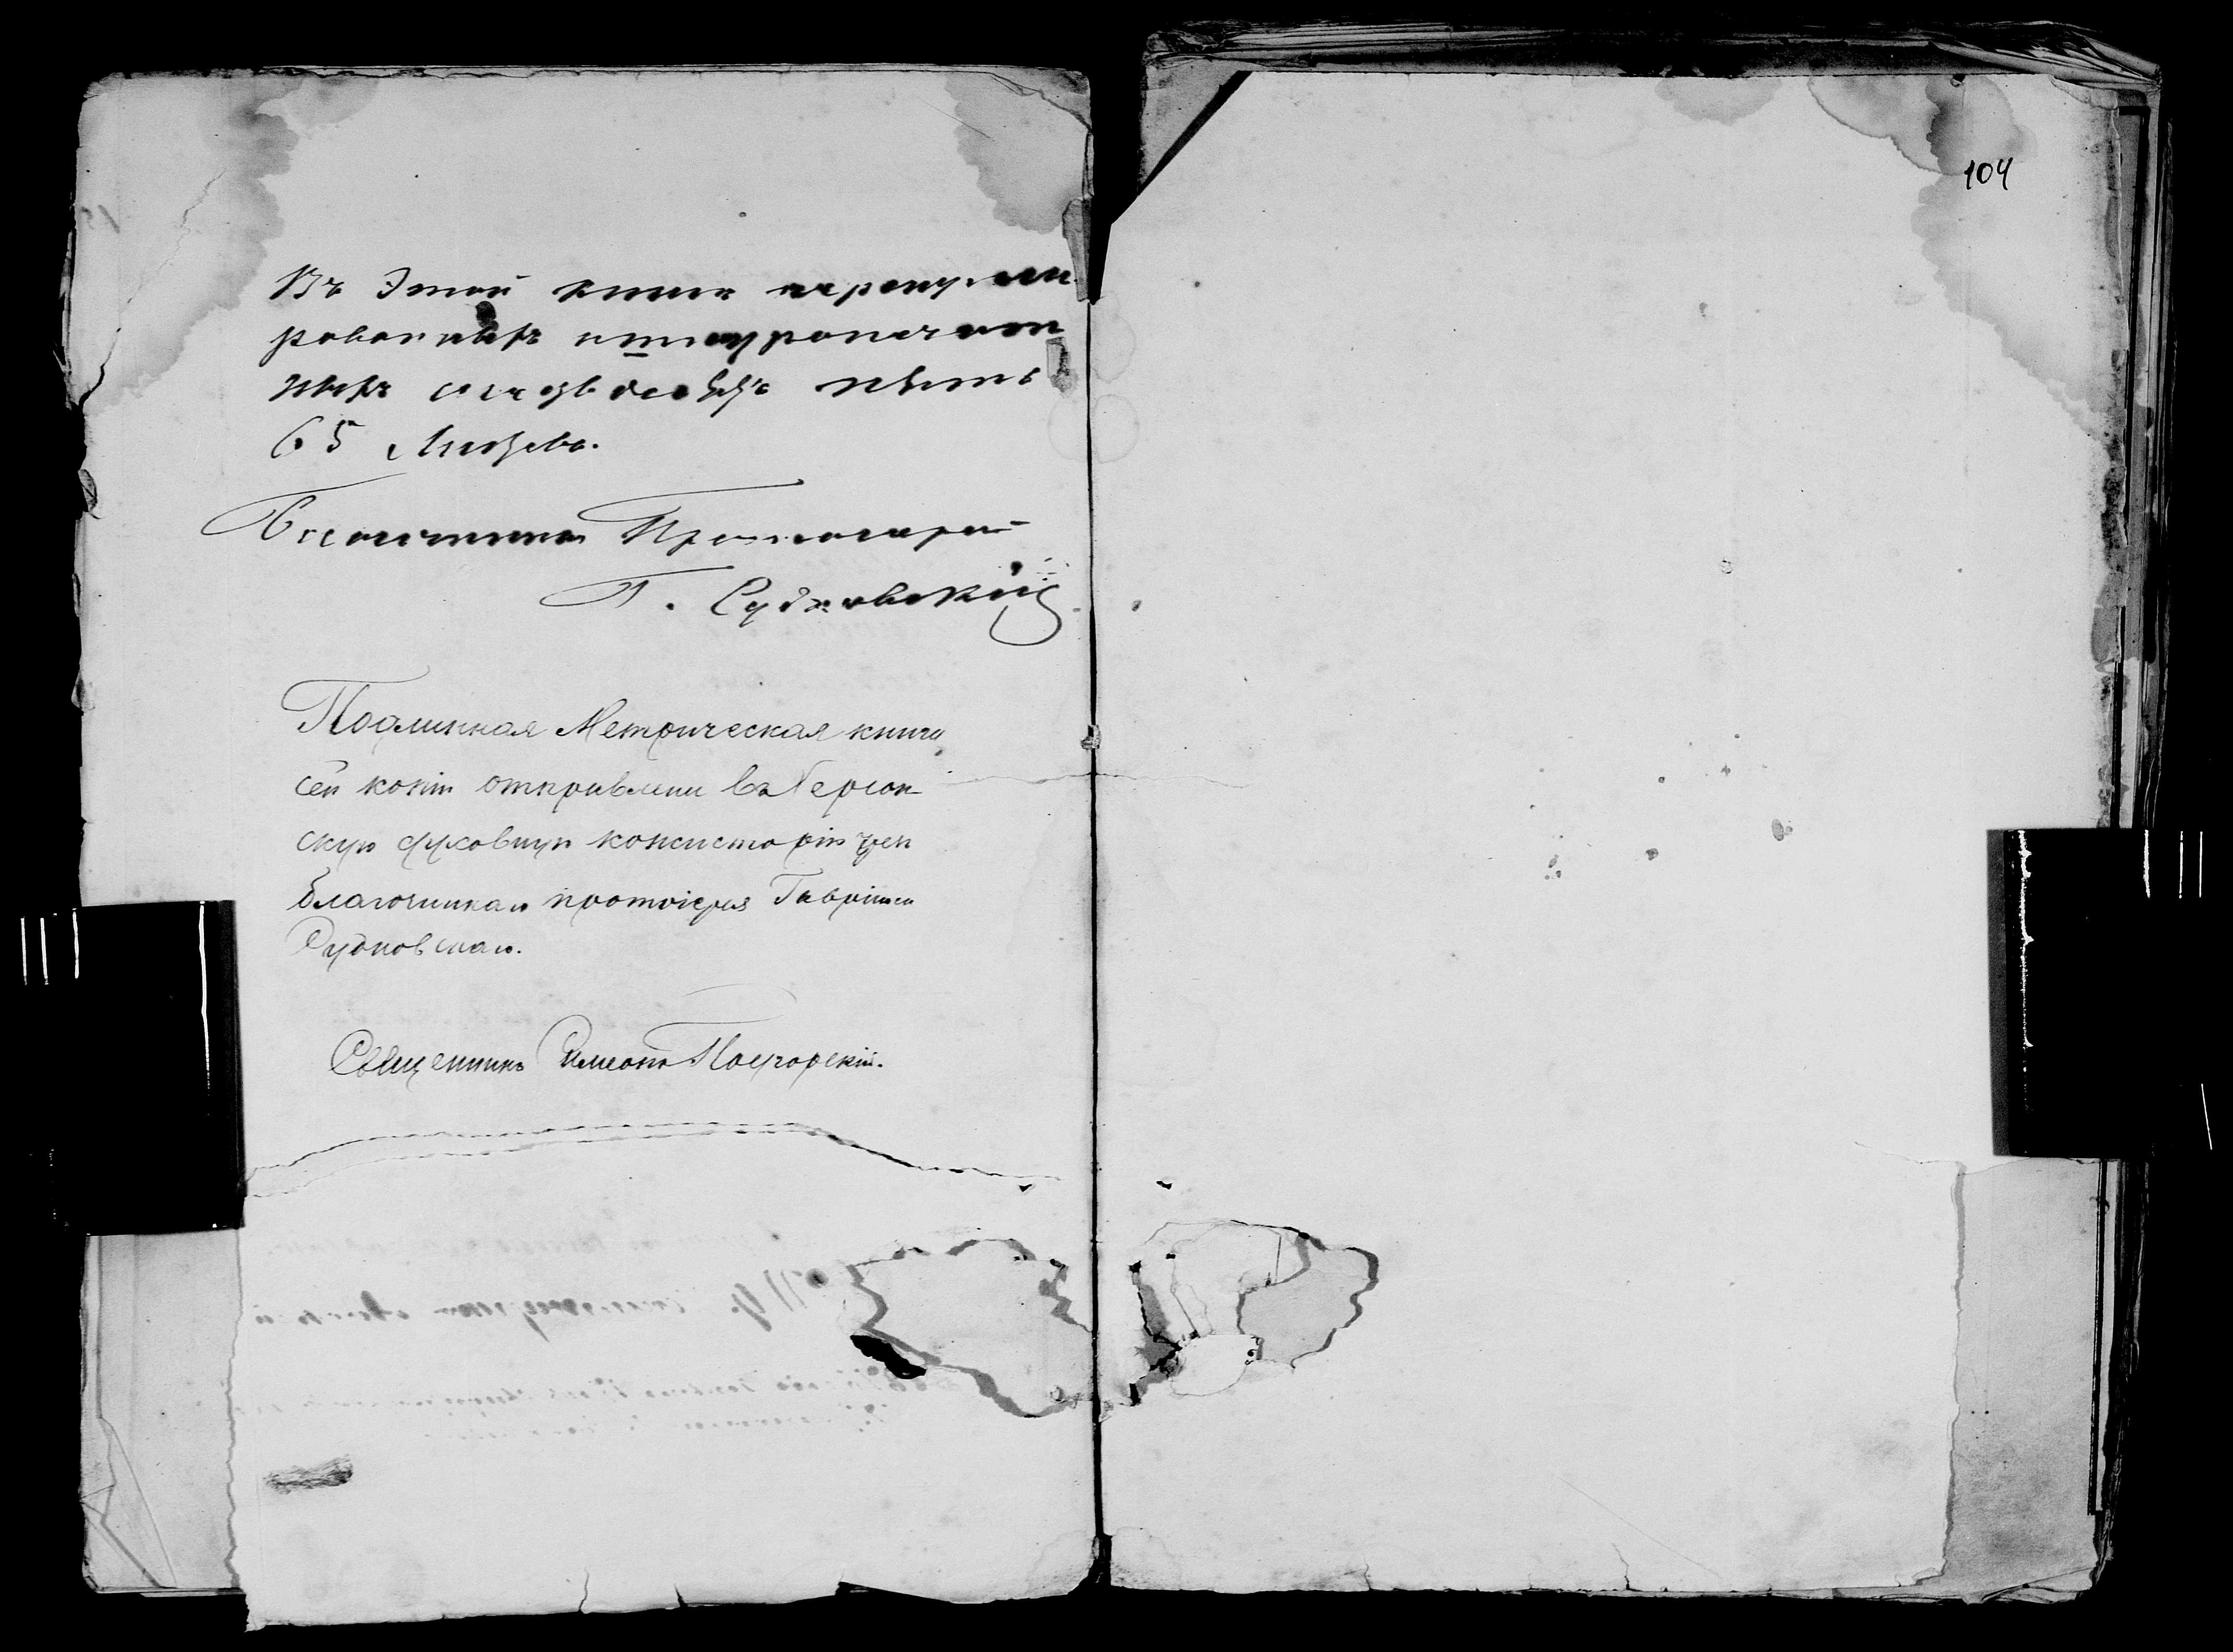 104
Въ этой книгѣ перенуме-
рованныхъ и прошнурован-
ныхъ шестьдесятъ пять
65 листовъ.
Благочинный Протоіерей
Г. Судковскій
Подлинная Метрическая книга
сей копіи отправлена въ Херсон-
скую духовную консисторію чрез
благочиннаго протоіерея Гавріила
Судковскаго.
Священникъ Симеонъ Погорскій.